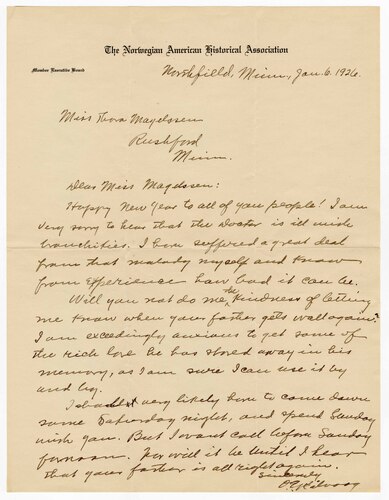 The Norwegian American Historical Association
Member Executive Board
Northfield, Minn., Jan. 6. 1926.
Miss Thora Magelssen
Rushford
Minn.
Dear Miss Magelssen:
Happy New Year to all of you people! I am
very sorry to hear that the Doctor is ill with
bronchities. I have suffered a great deal
from that malady myself and know
from experience how bad it can be.
Will you not do me the kindness of letting
me know when your father gets well again?
I am exceedingly anxious to get some of
the rich lore he has stored away in his
memory, as I am sure I can use it by
and by.
I should very likely have to come down
some Saturday night, and spend Sunday
with you. But I won't call before Sunday
forenoon. Nor will it be until I hear
that your father is all right again.
Sincerely